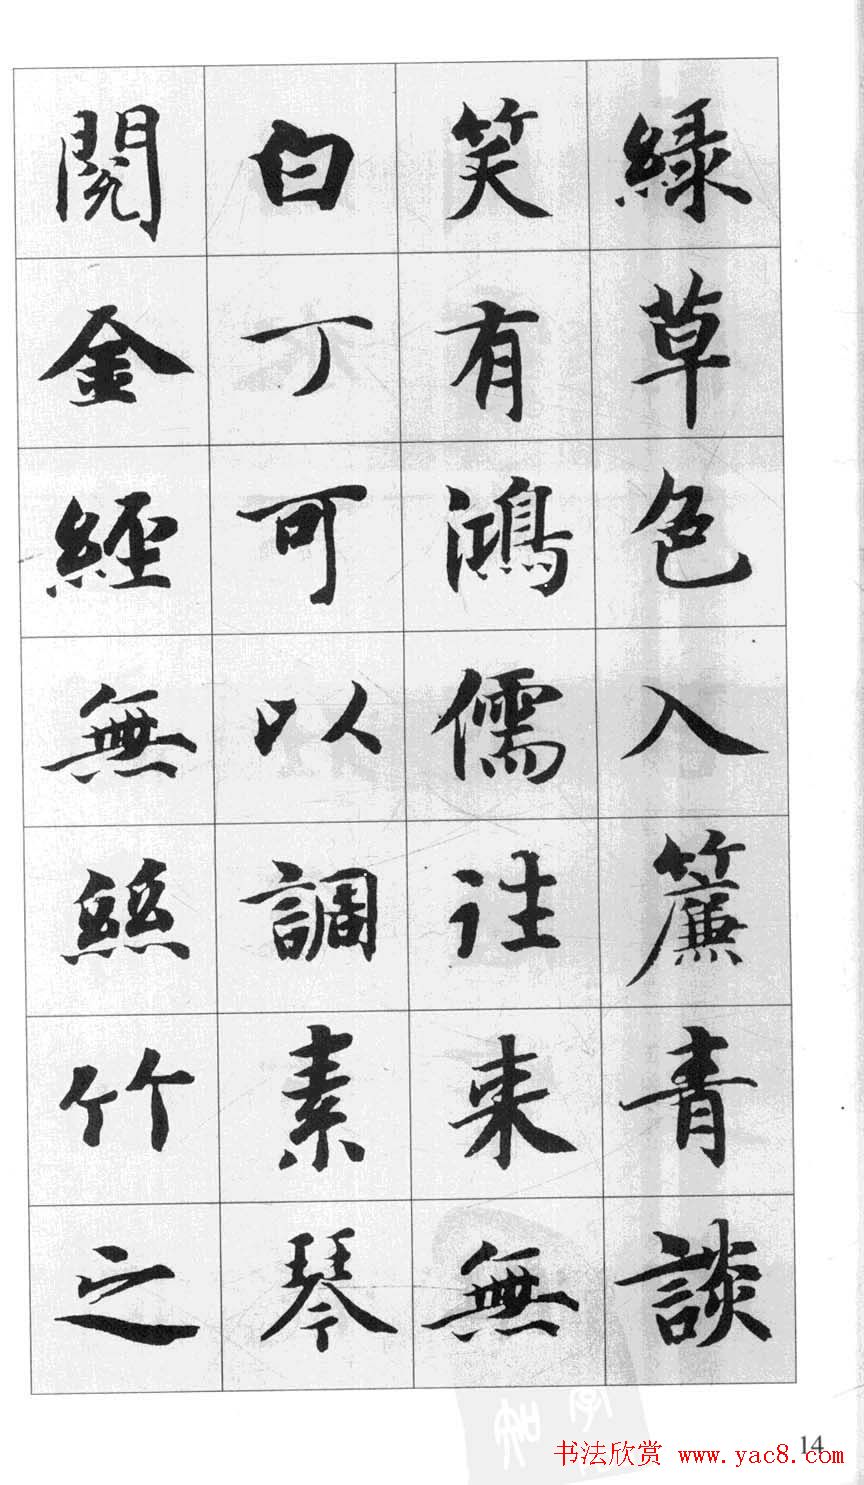 綠草色入簾青談
笑有鴻儒往来無
白丁可以調素琴
閱金經無絲竹之
14
书法欣赏 www.yac8.com